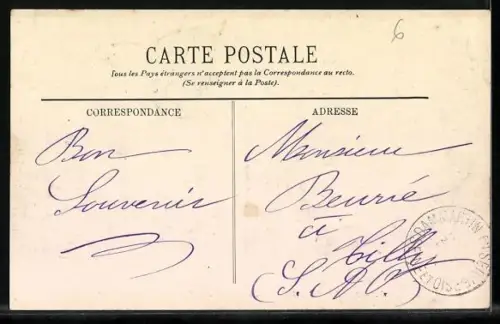 6
CARTE POSTALE
Tous les Pays étrangers n'acceptent pas la Correspondance au recto.
(Se renseigner à la Poste).
CORRESPONDANCE
Bon
Souvenir
ADRESSE
Monsieur
Beurié
à
Tilly
(S. & O.)
SEINE ET OISE